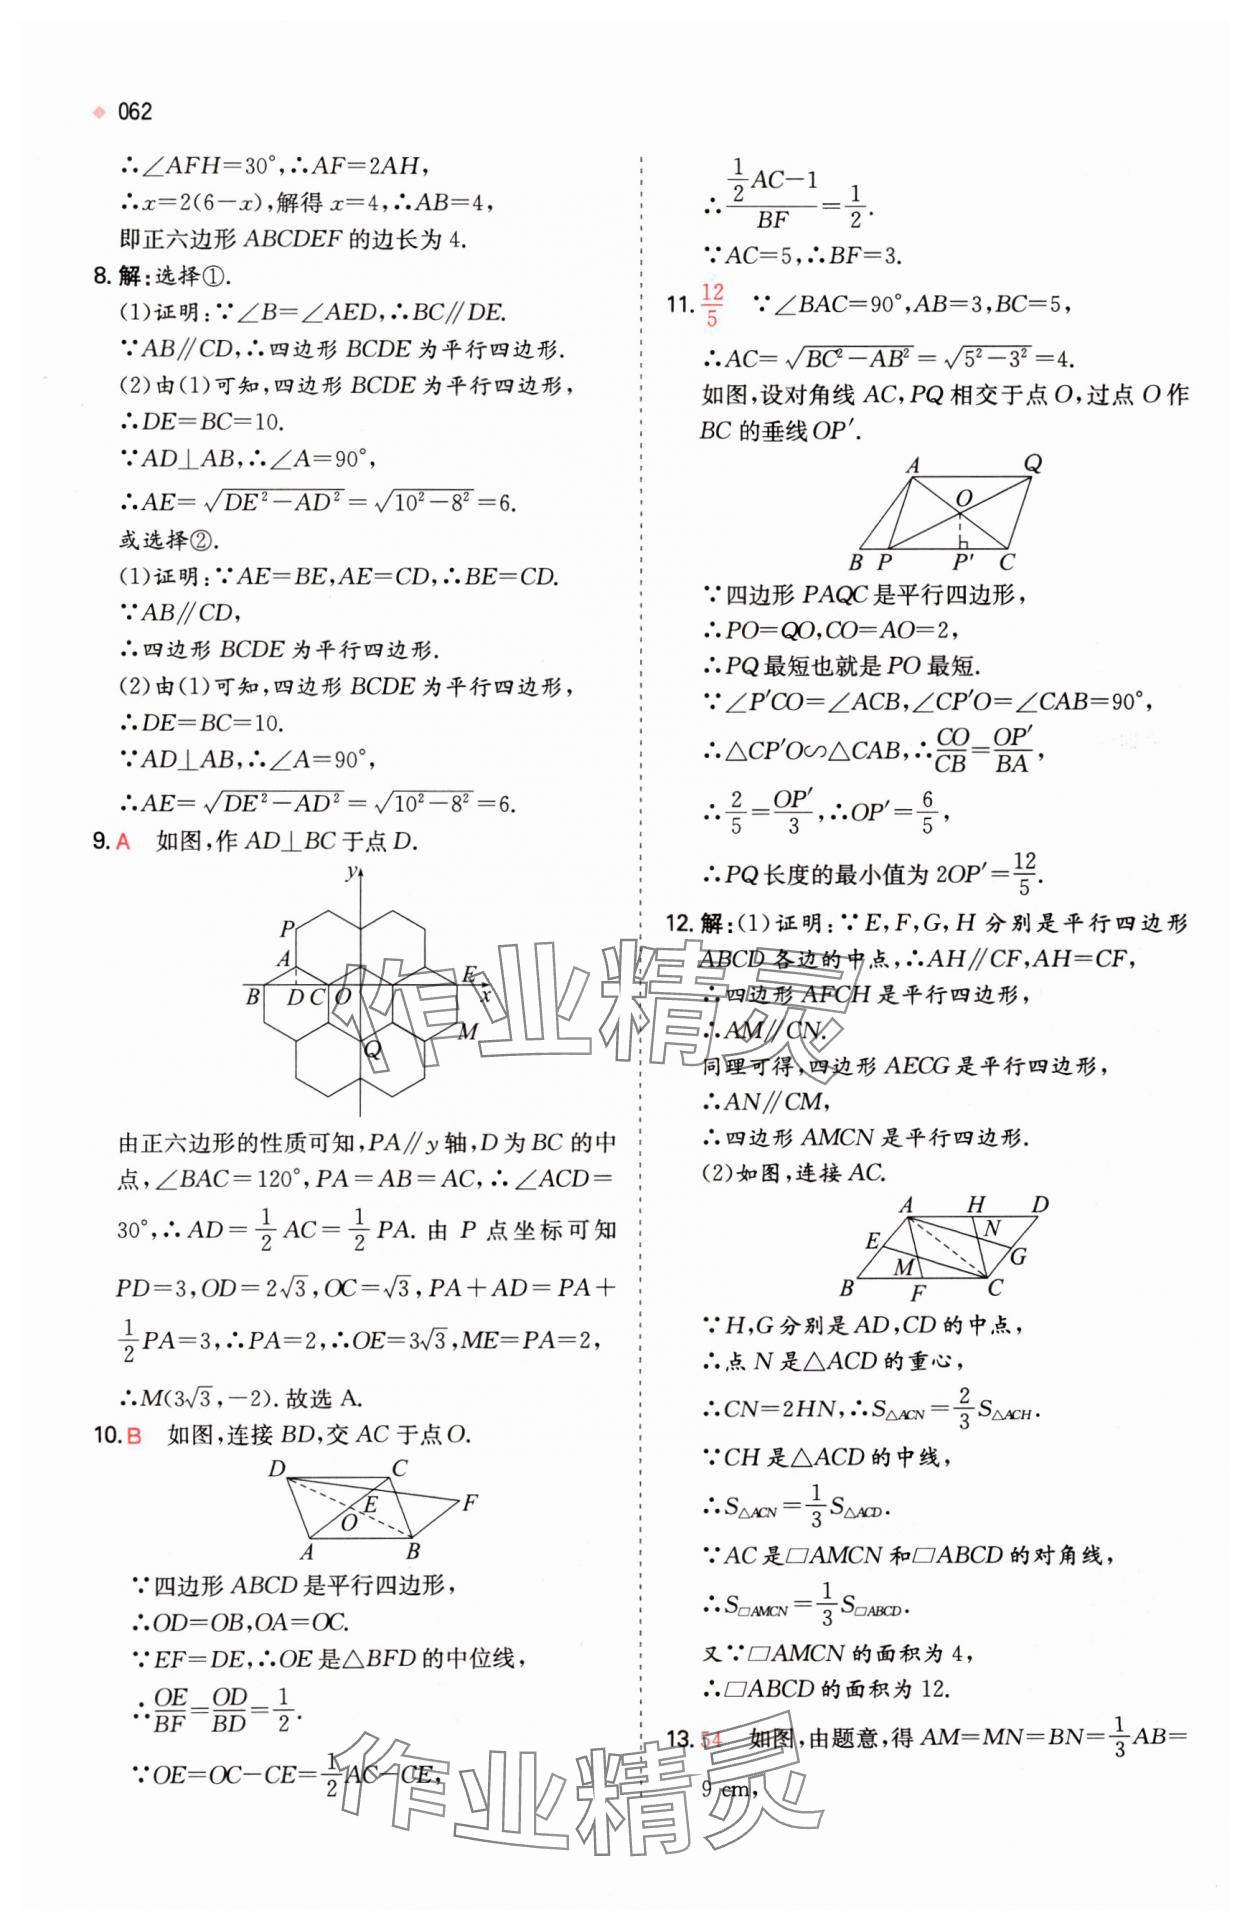 062
∴∠AFH=30°,∴AF=2AH,
∴x=2(6-x),解得 x=4,∴AB=4,
即正六边形 ABCDEF 的边长为 4.
8. 解:选择①.
(1)证明:∵∠B=∠AED,∴BC∥DE.
∵AB∥CD,∴四边形 BCDE 为平行四边形.
(2)由(1)可知,四边形 BCDE 为平行四边形,
∴DE=BC=10.
∵AD⊥AB,∴∠A=90°,
∴AE=√(DE²-AD²)=√(10²-8²)=6.
或选择②.
(1)证明:∵AE=BE,AE=CD,∴BE=CD.
∵AB∥CD,
∴四边形 BCDE 为平行四边形.
(2)由(1)可知,四边形 BCDE 为平行四边形,
∴DE=BC=10.
∵AD⊥AB,∴∠A=90°,
∴AE=√(DE²-AD²)=√(10²-8²)=6.
9. A 如图,作 AD⊥BC 于点 D.
y
P
A
E
B D C O x
M
Q
由正六边形的性质可知,PA∥y 轴,D 为 BC 的中
点,∠BAC=120°,PA=AB=AC,∴∠ACD=
30°,∴AD=1/2 AC=1/2 PA. 由 P 点坐标可知
PD=3,OD=2√3,OC=√3,PA+AD=PA+
1/2 PA=3,∴PA=2,∴OE=3√3,ME=PA=2,
∴M(3√3,-2).故选 A.
10. B 如图,连接 BD,交 AC 于点 O.
D C
E F
O
A B
∵四边形 ABCD 是平行四边形,
∴OD=OB,OA=OC.
∵EF=DE,∴OE 是△BFD 的中位线,
∴OE/BF=OD/BD=1/2.
∵OE=OC-CE=1/2 AC-CE,
∴(1/2 AC-1)/BF=1/2.
∵AC=5,∴BF=3.
11. 12/5 ∵∠BAC=90°,AB=3,BC=5,
∴AC=√(BC²-AB²)=√(5²-3²)=4.
如图,设对角线 AC,PQ 相交于点 O,过点 O 作
BC 的垂线 OP′.
A Q
O
B P P′ C
∵四边形 PAQC 是平行四边形,
∴PO=QO,CO=AO=2,
∴PQ 最短也就是 PO 最短.
∵∠P′CO=∠ACB,∠CP′O=∠CAB=90°,
∴△CP′O∽△CAB,∴CO/CB=OP′/BA,
∴2/5=OP′/3,∴OP′=6/5,
∴PQ 长度的最小值为 2OP′=12/5.
12. 解:(1)证明:∵E,F,G,H 分别是平行四边形
ABCD 各边的中点,∴AH∥CF,AH=CF,
∴四边形 AFCH 是平行四边形,
∴AM∥CN.
同理可得,四边形 AECG 是平行四边形,
∴AN∥CM,
∴四边形 AMCN 是平行四边形.
(2)如图,连接 AC.
A H D
E N
G
M
B F C
∵H,G 分别是 AD,CD 的中点,
∴点 N 是△ACD 的重心,
∴CN=2HN,∴S△ACN=2/3 S△ACH.
∵CH 是△ACD 的中线,
∴S△ACN=1/3 S△ACD.
∵AC 是□AMCN 和□ABCD 的对角线,
∴S□AMCN=1/3 S□ABCD.
又∵□AMCN 的面积为 4,
∴□ABCD 的面积为 12.
13. 54 如图,由题意,得 AM=MN=BN=1/3 AB=
9 cm,
作业精灵
作业精灵